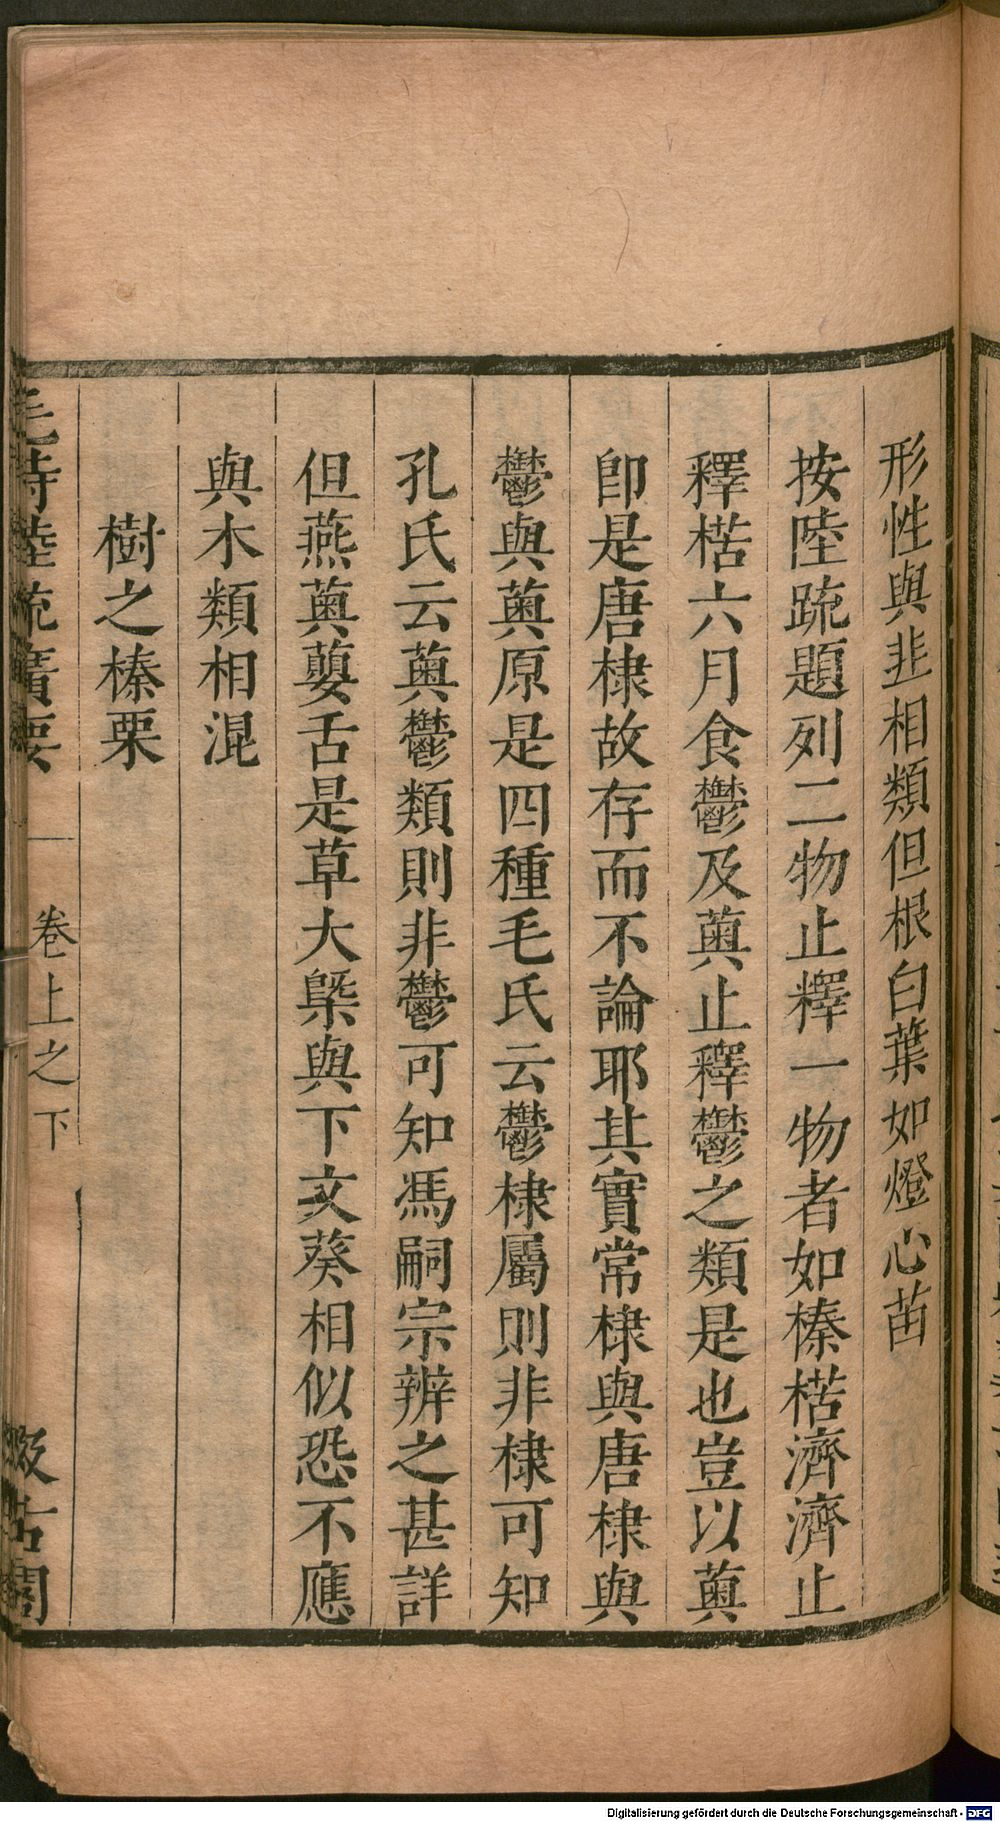 形性與韭相類但根白葉如燈心苗
按陸疏題列二物止釋一物者如榛楛濟濟止
釋楛六月食鬱及薁止釋鬱之類是也豈以薁
卽是唐棣故存而不論耶其實常棣與唐棣與
鬱與薁原是四種毛氏云鬱棣屬則非棣可知
孔氏云薁鬱類則非鬱可知馮嗣宗辨之甚詳
但燕薁蘡舌是草大槩與下文葵相似恐不應
與木類相混
樹之榛栗
毛詩陸疏廣要
卷上之下
汲古閣
Digitalisierung gefördert durch die Deutsche Forschungsgemeinschaft - DFG